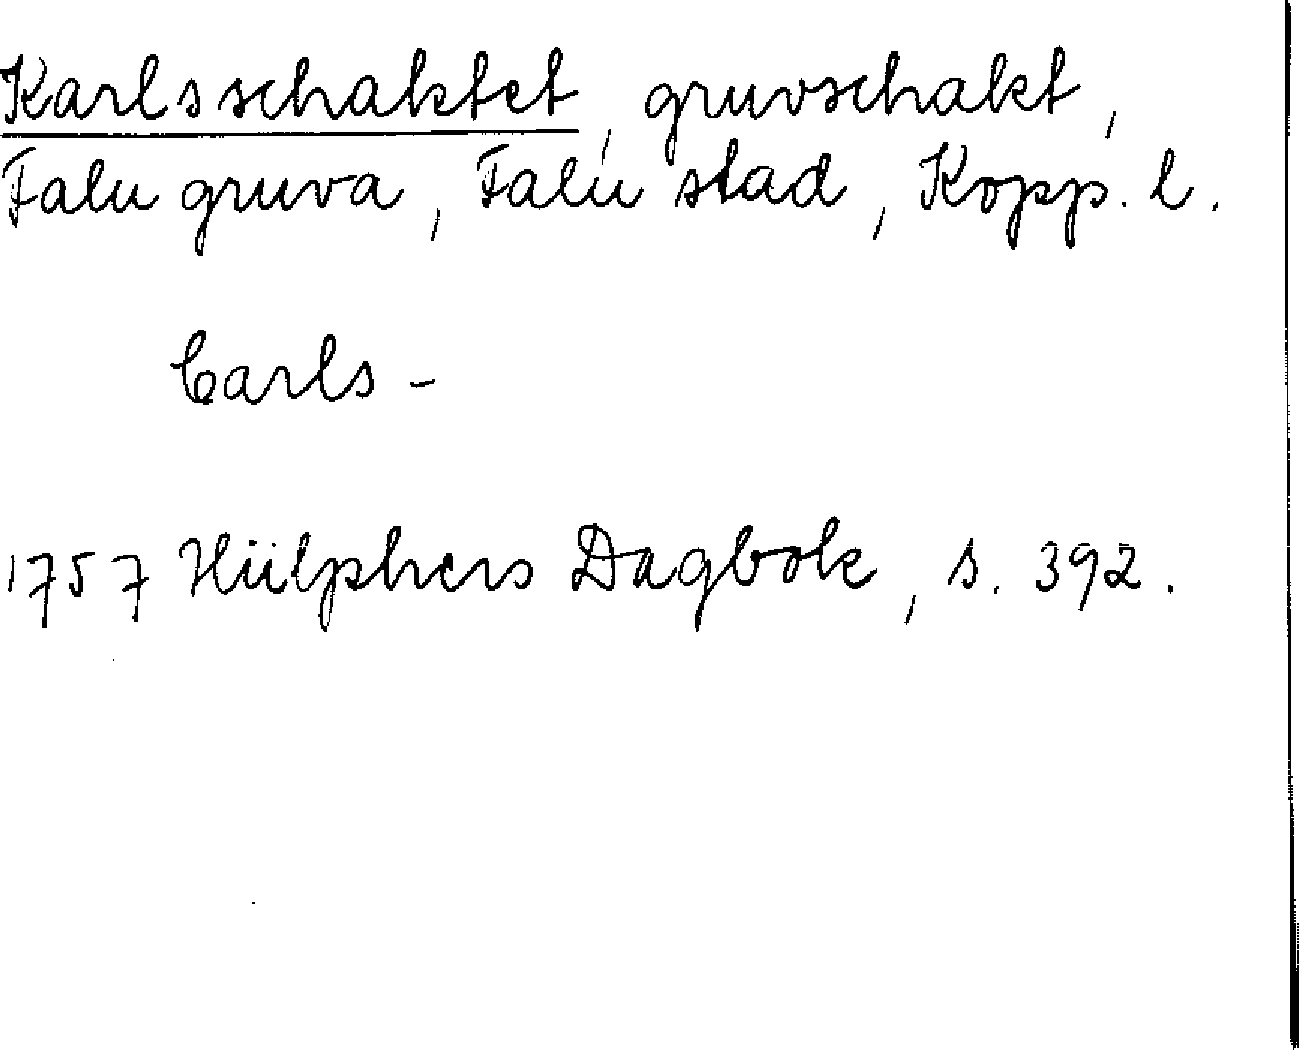 Karlsschaktet, gruvschakt,
Falu gruva, Falu stad, Kopp. l.
Carls-
1757 Hülphers Dagbok, s. 392.